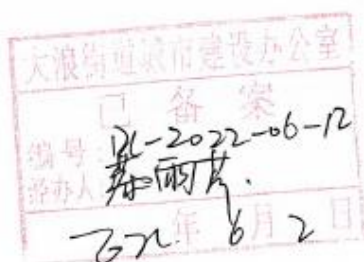 大浪街道城市建设办公室
已备案
编号：DL-2022-06-12
经办人
2022年6月2日